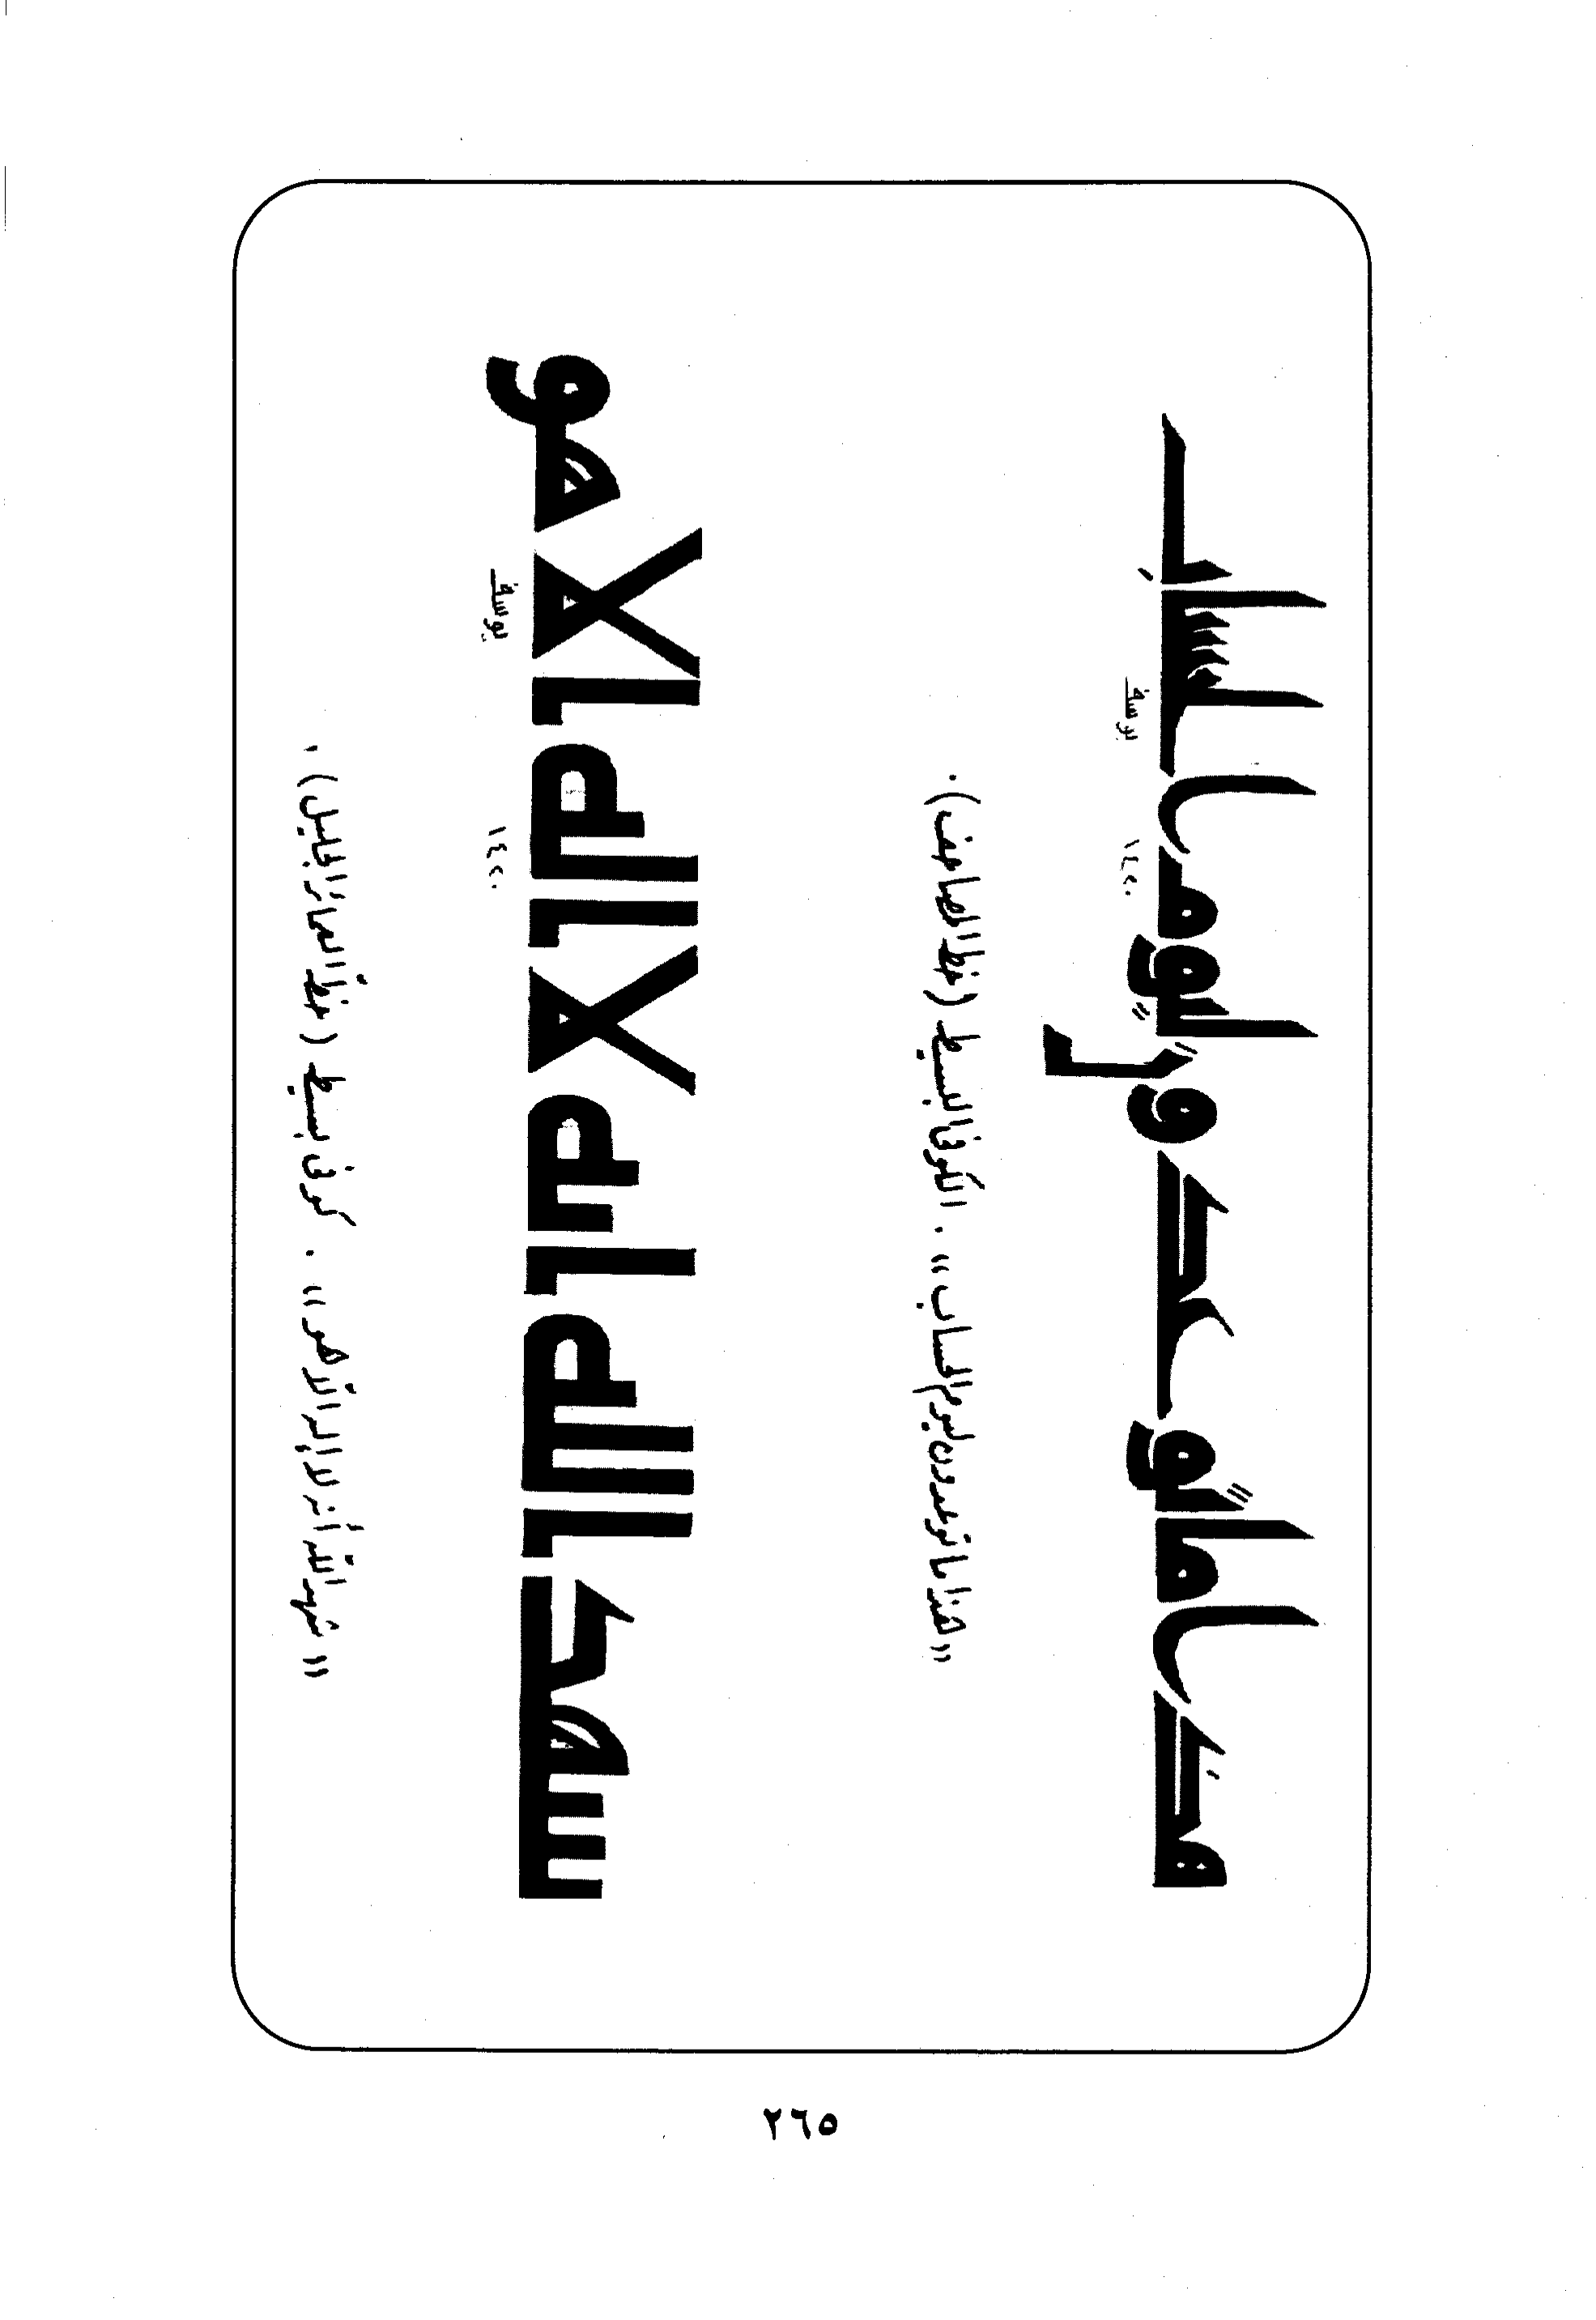 هذا ما توعدون ليوم الحساب
يوسف ١٤٢٠
((هذا ما توعدون ليوم الحساب)) . الكوفي البسيط (خط المصاحف) .
شهد الله انه لا اله الا هو
يوسف ١٤٢٠
((شهد الله أنه لا إله إلا هو)) . كوفي بسيط (خط العمائر الجليل) .
٢٦٥